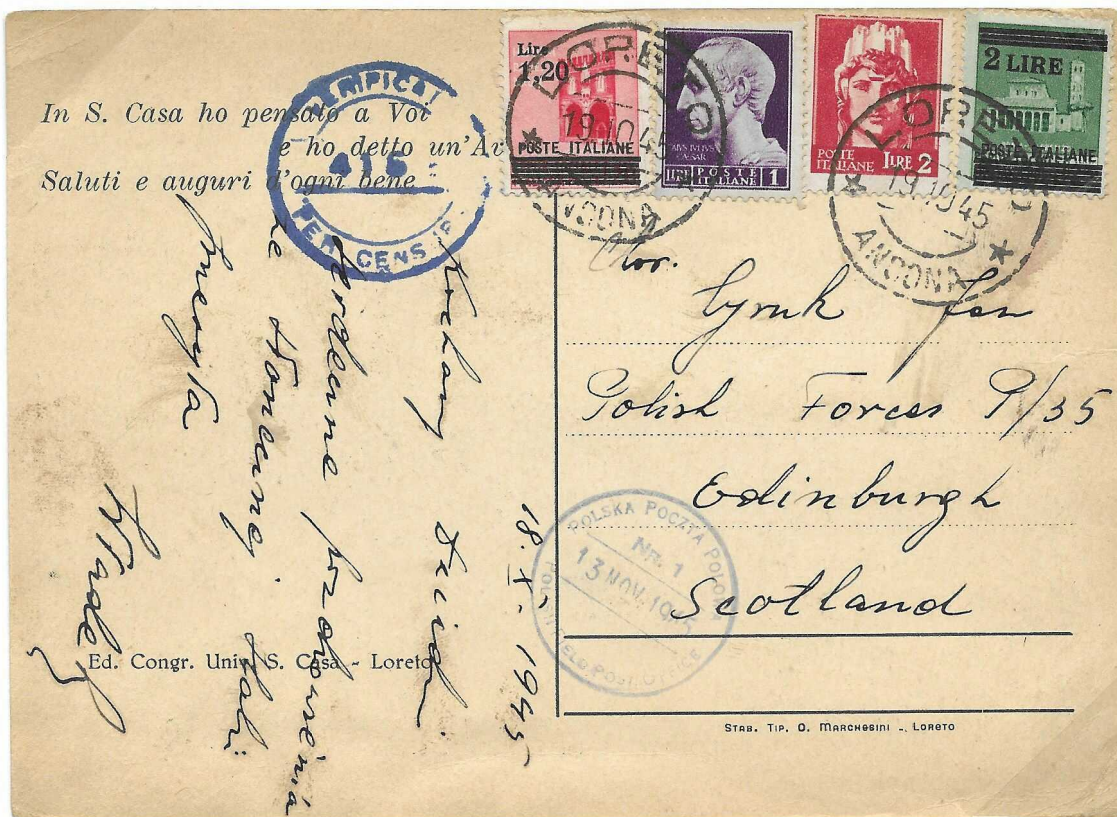 In S. Casa ho pensato a Voi
e ho detto un'Av
Saluti e auguri d'ogni bene
VERIFICAT
415
PER CENS
Lire
1,20
POSTE ITALIANE
POSTE
ITALIANE
LIRE 1
POSTE
ITALIANE LIRE 2
2 LIRE
POSTE ITALIANE
LORETO
19.10.45
ANCONA
LORETO
19.10.45
ANCONA
Jan
Polish Forces P/35
Edinburgh
Scotland
POLSKA POCZTA POLOWA
NR. 1
13 NOV. 1945
POLISH FIELD POST OFFICE
18. X. 1945
Kochany
serdeczne pozdrowienia
ze
Władek
Ed. Congr. Univ. S. Casa - Loreto
STAB. TIP. O. MARCHESINI - LORETO